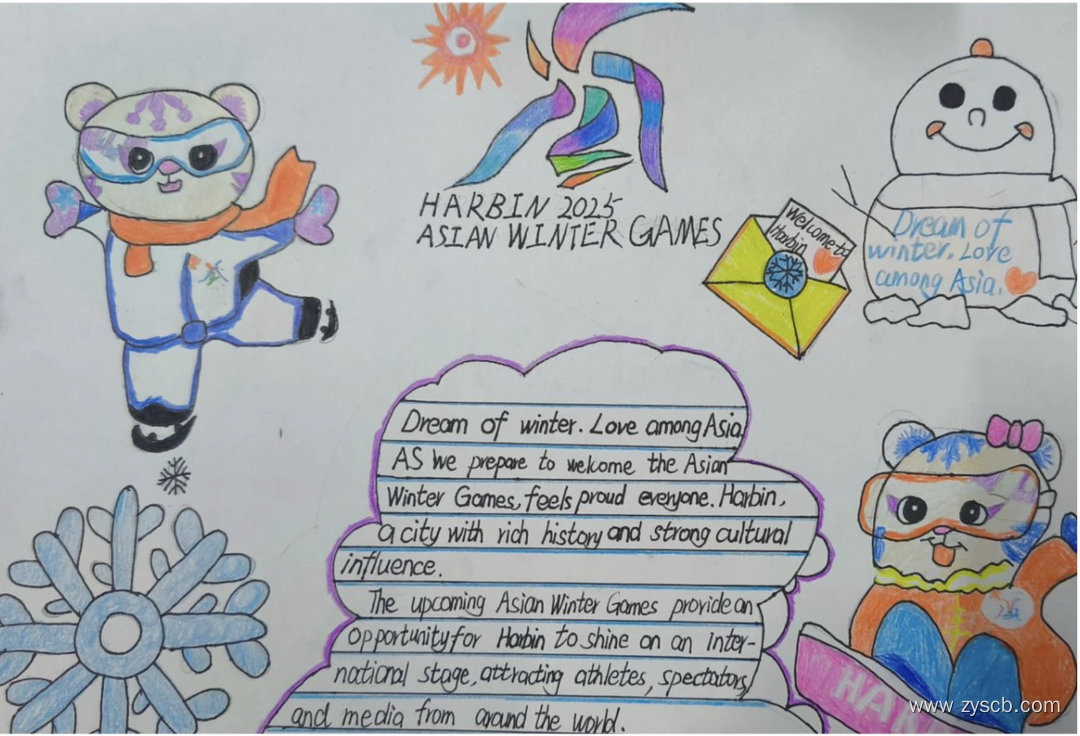 HARBIN 2025
ASIAN WINTER GAMES
Welcome to
Harbin
Dream of
winter. Love
among Asia.
Dream of winter. Love among Asia.
AS we prepare to welcome the Asian
Winter Games, feels proud everyone. Harbin,
a city with rich history and strong cultural
influence.
The upcoming Asian Winter Games provide an
opportunity for Harbin to shine on an inter-
national stage, attracting athletes, spectators,
and media from around the world.
HAR
www.zyscb.com